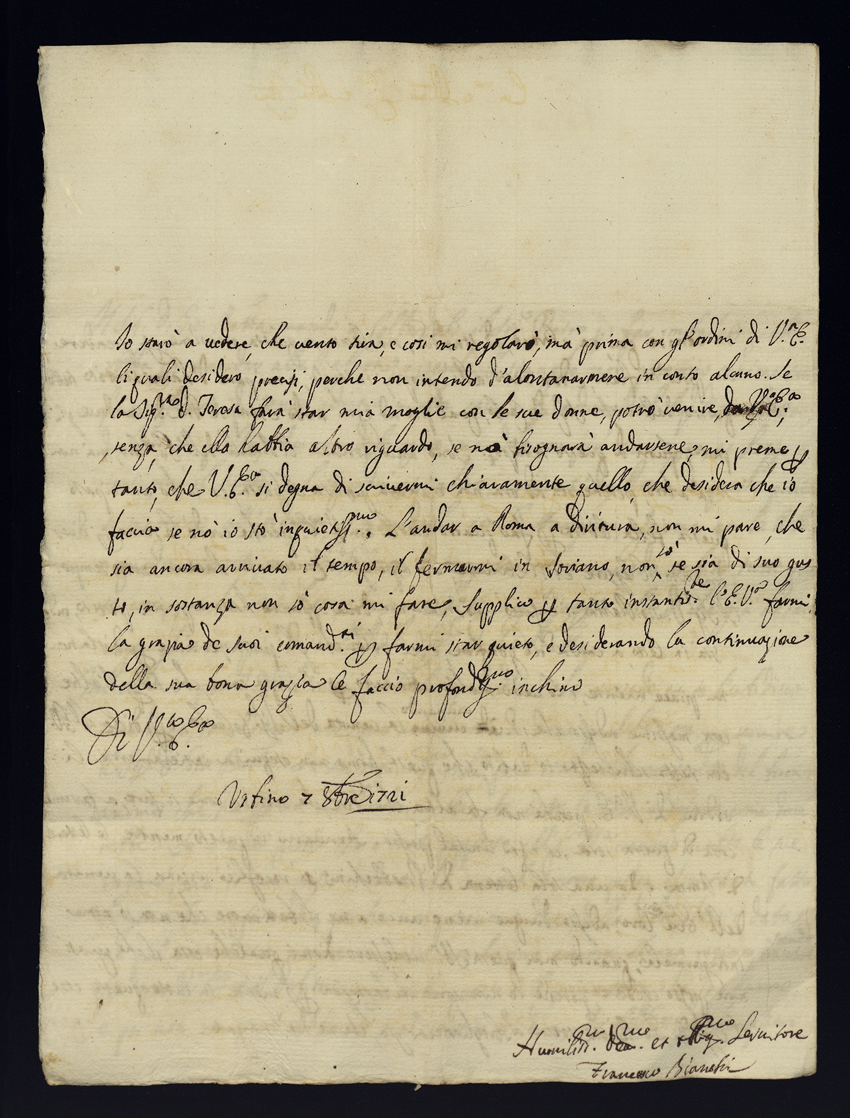 Io starò a vedere, che vento tira, e così mi regolarò, mà prima con gl'ordini di V.ra E.
li quali desidero precisi, perche non intendo d'alontanarmene in conto alcuno. Se
la Sig.ra D. Teresa farà star mia moglie con le sue donne, potrò venire,
senza, che ella habbia altro riguardo, se nò bisognarà andarsene, mi preme p
tanto, che V. E. si degna di scrivermi chiaramente quello, che desidera che iò
faccia se nò iò stò inquietiss.mo. L'andar a Roma a diritura, non mi pare, che
sia ancora arrivato il tempo, il fermarmi in Soriano, non sò se sia di suo gus
to, in sostanza non sò cosa mi fare, supplico p tanto instantis.te l'E. V.ra farmi
la grazia de suoi comand.ti p farmi star quieto, e desiderando la continuazione
della sua bona grazia le faccio profondiss.mo inchino
Di V.ra E.
Urbino 7 8bre 1721
Humiliss.mo dev.mo et oblig.mo Servitore
Francesco Bianchi